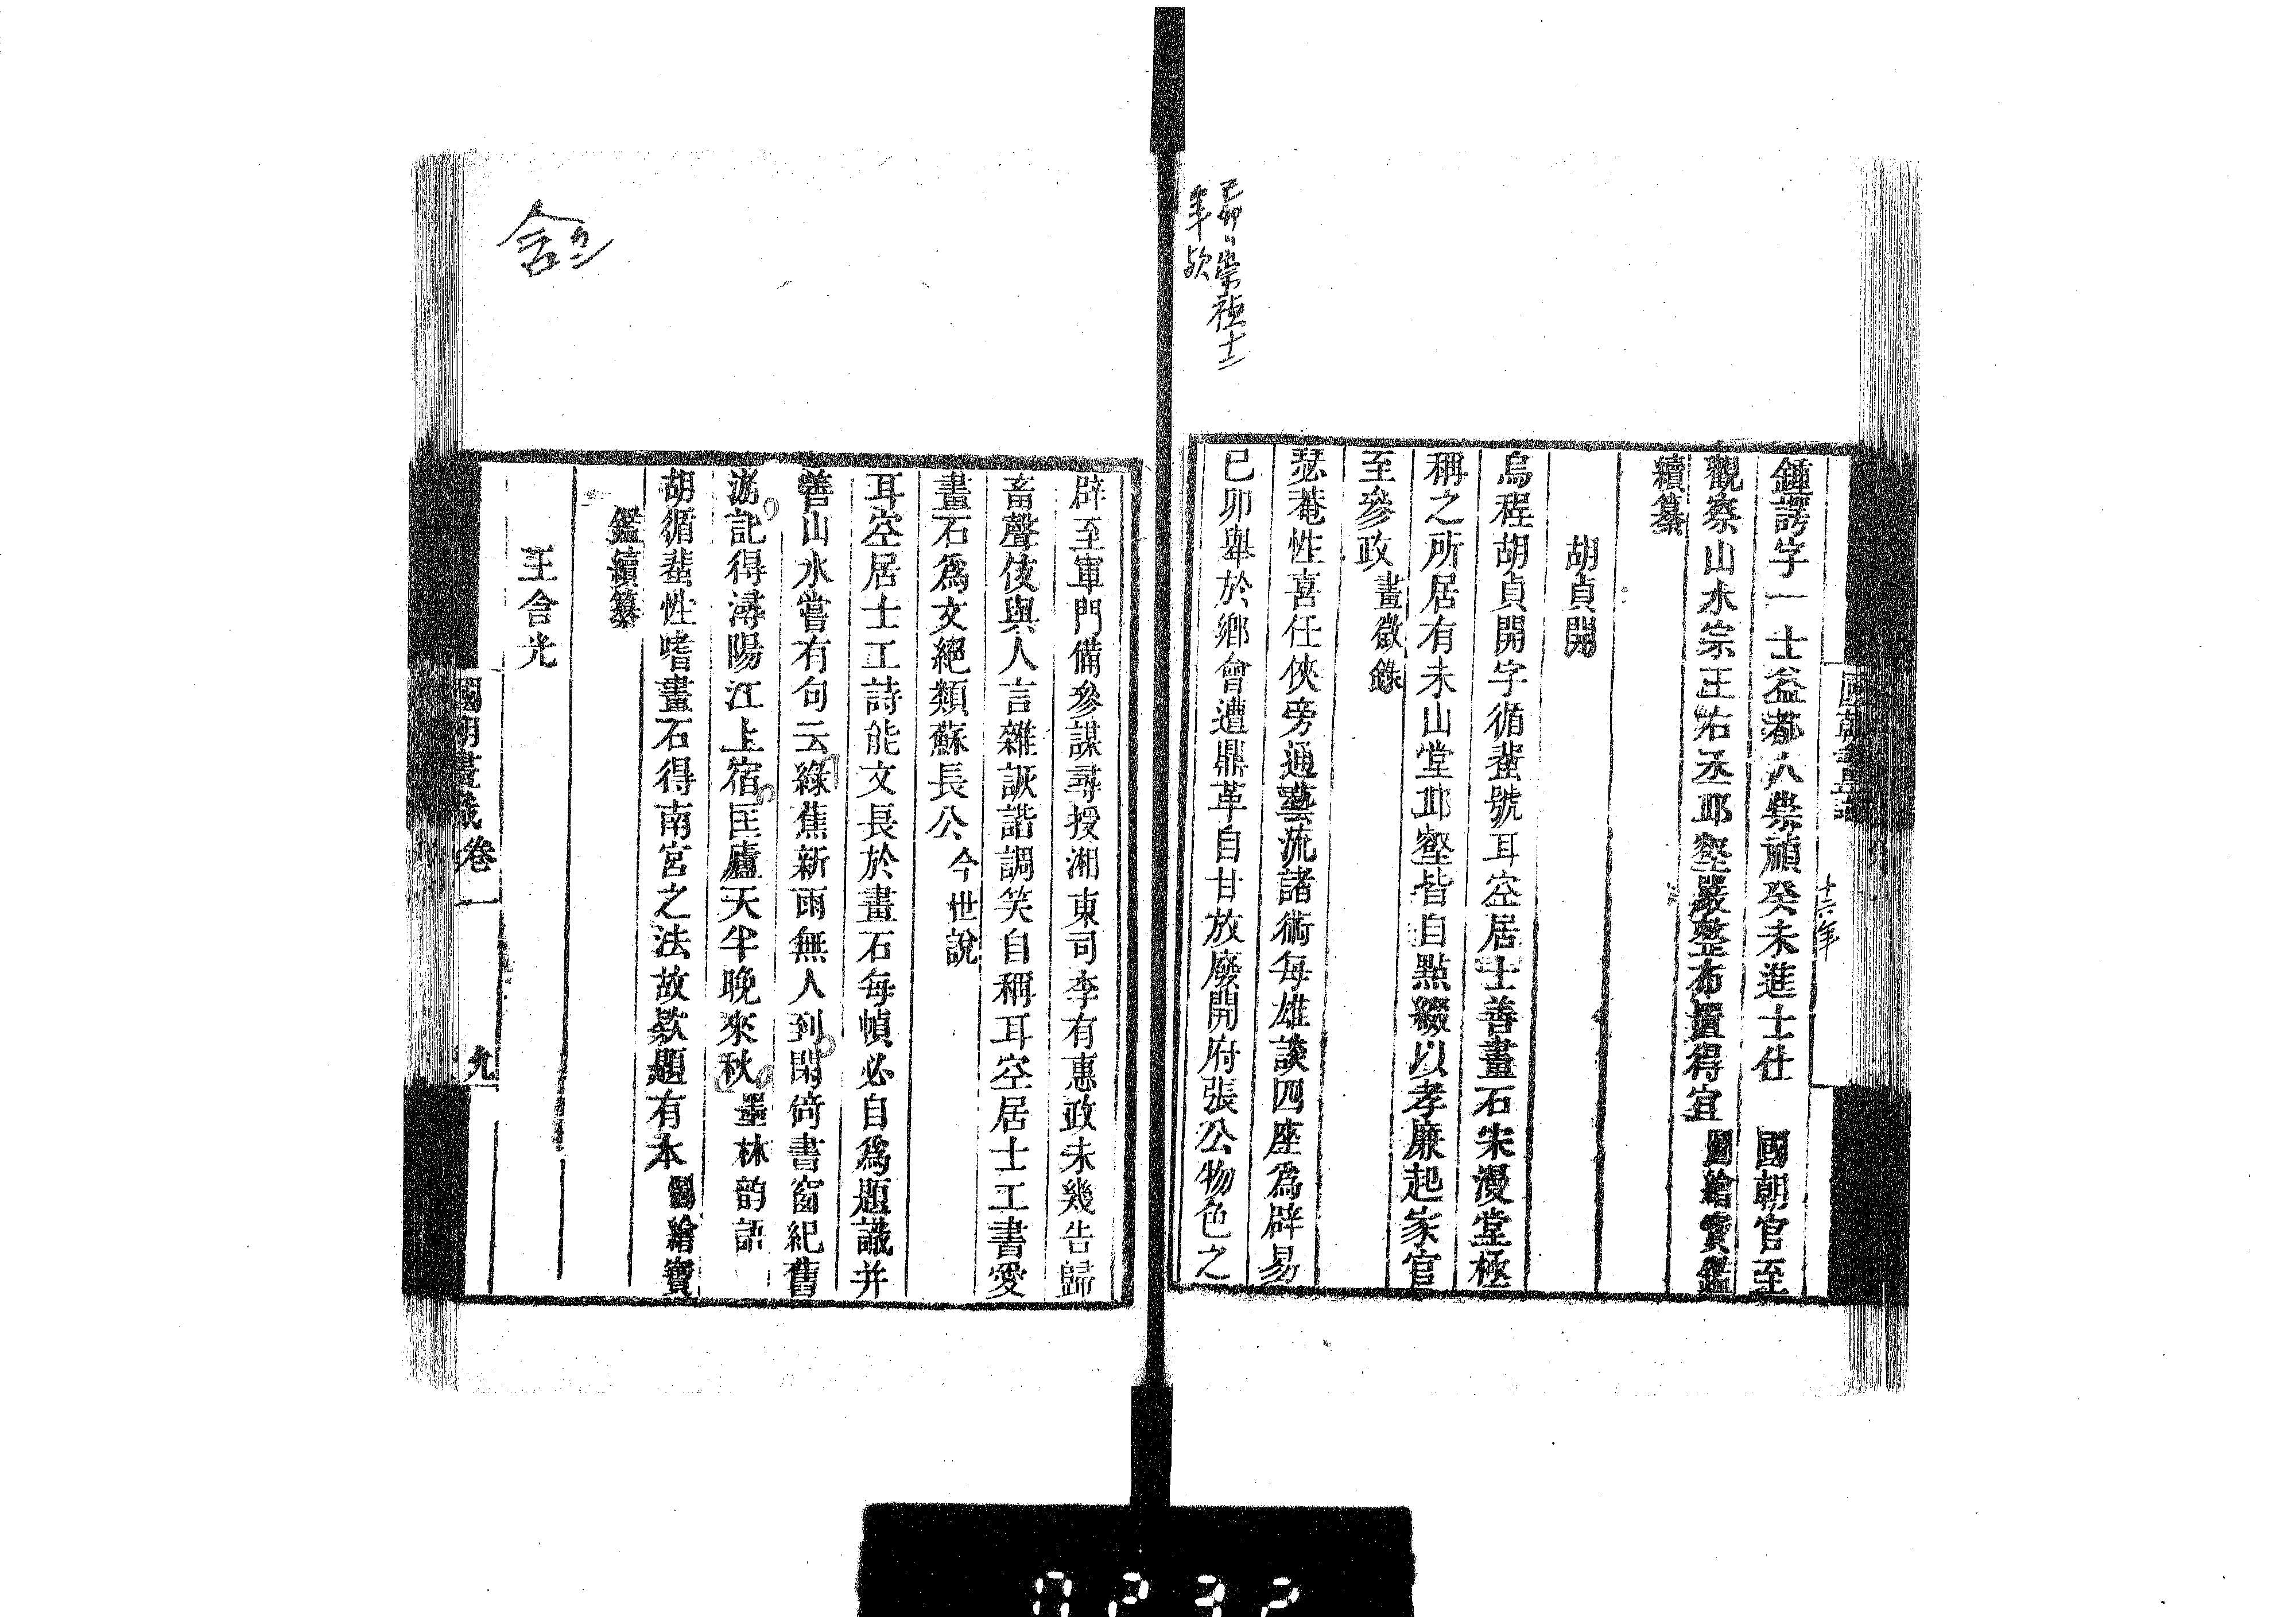 十六年
鍾諤字一士益都人崇禎癸未進士仕 國朝官至
觀察山水宗王右丞邱壑嚴整布置得宜 圖繪寶鑑
續纂
胡貞開
烏程胡貞開字循蜚號耳空居士善畫石宋漫堂極
稱之所居有未山堂邱壑皆自點綴以孝廉起家官
至參政 畫徵錄
瑟菴性喜任俠旁通藝流諸術每雄談四座爲辟易
己卯舉於鄉會遭鼎革自甘放廢開府張公物色之
己卯崇禎十二
年
辟至軍門備參謀尋授湘東司李有惠政未幾告歸
畜聲伎與人言雜詼諧調笑自稱耳空居士工書愛
畫石爲文絕類蘇長公 今世說
耳空居士工詩能文長於畫石每幀必自爲題識并
善山水嘗有句云綠蕉新雨無人到閑倚書窗紀舊
游記得潯陽江上宿匡廬天半晚來秋 墨林韵語
胡循蜚性嗜畫石得南宮之法故款題有本 圖繪寶
鑑續纂
王含光
國朝畫識卷一
九